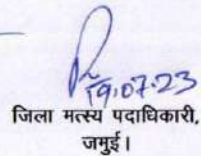 19.07.23
जिला मत्स्य पदाधिकारी,
जमुई।